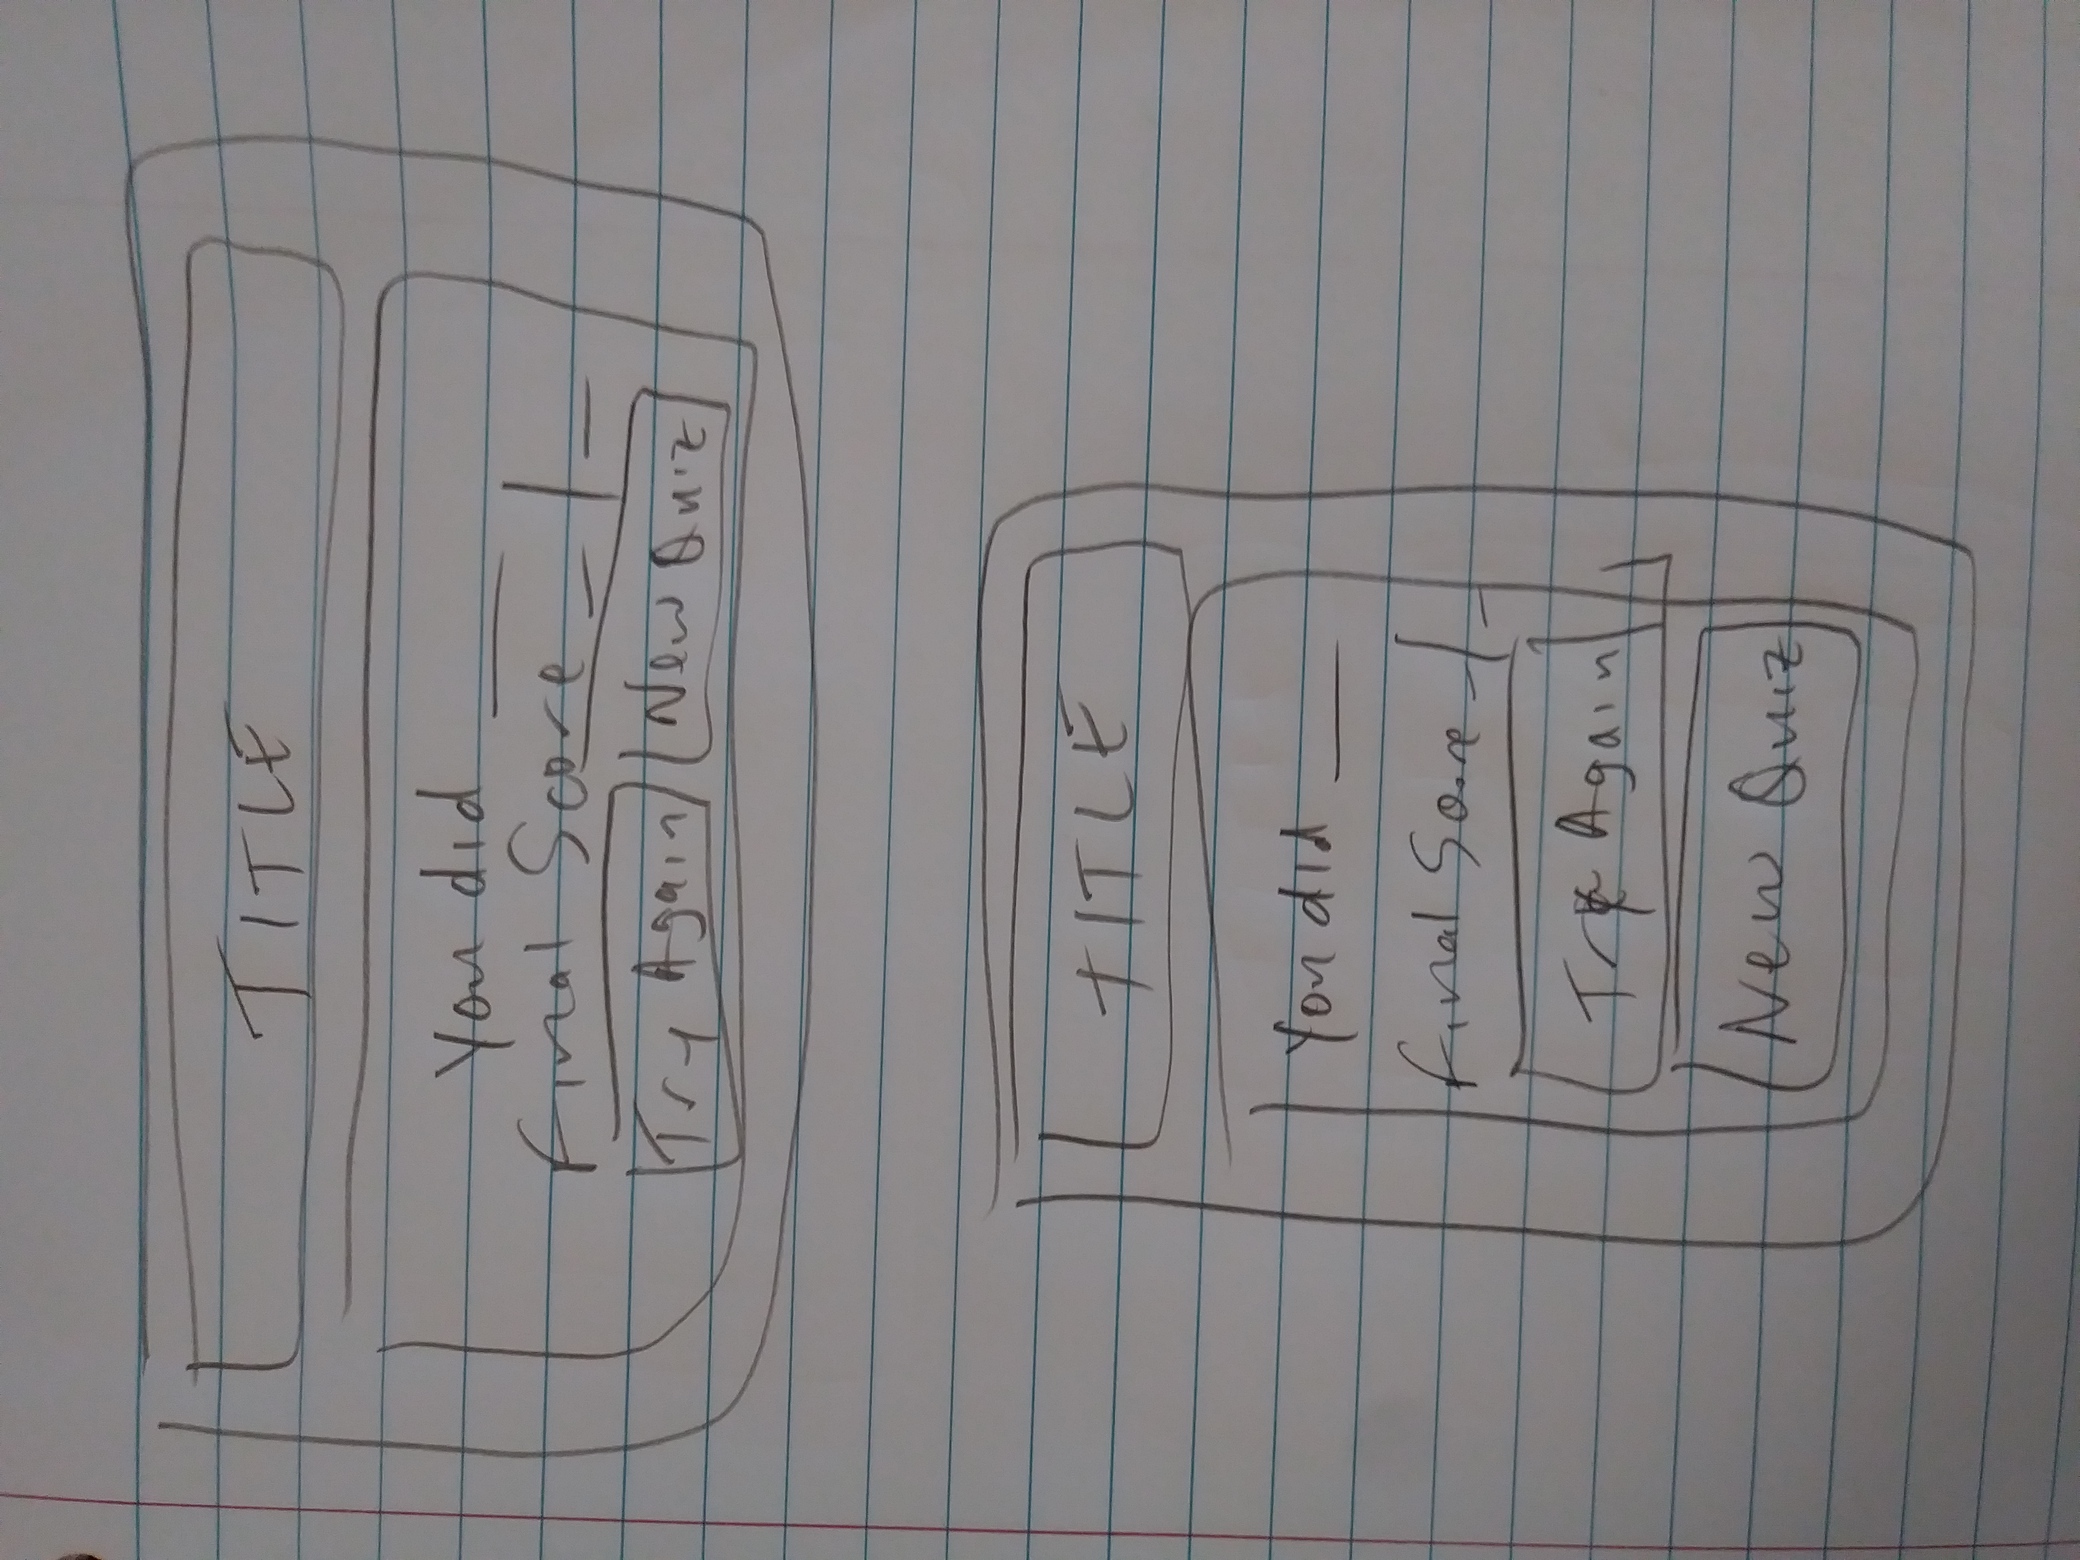 TITLE
You did ___
Final Score _/_
Try Again New Quiz
TITLE
You did ___
Final Score _/_
Try Again
New Quiz